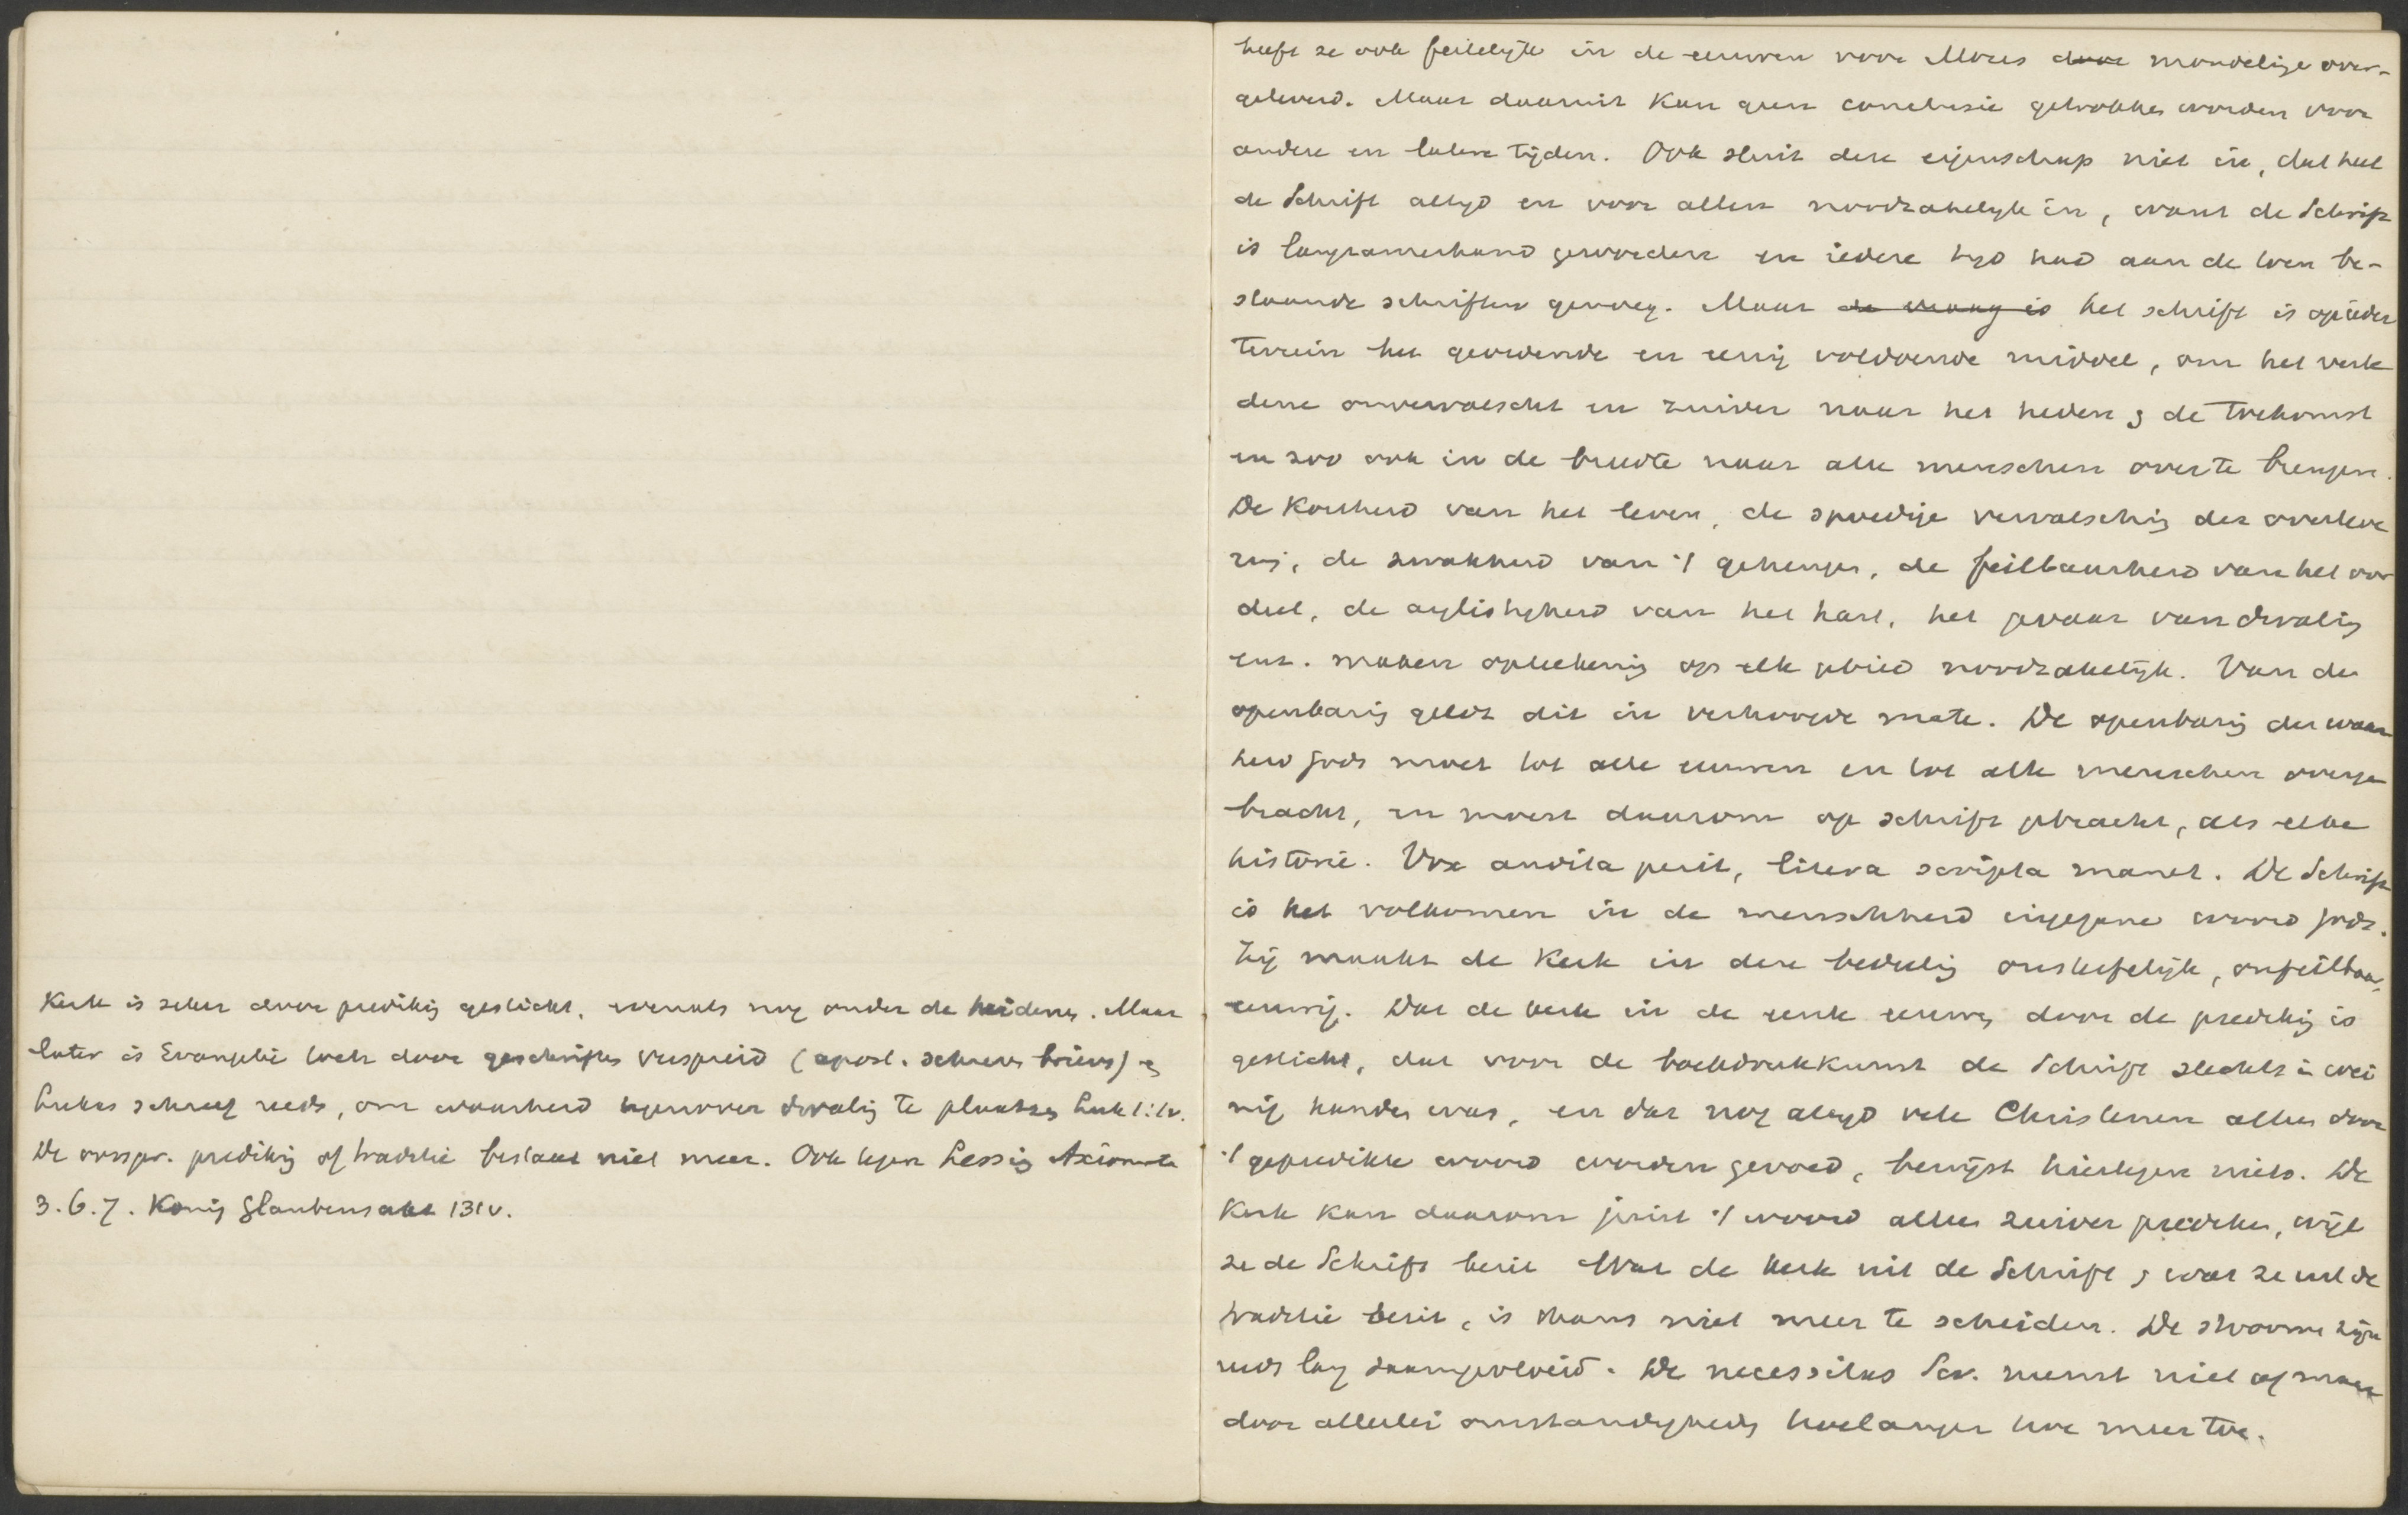 Kerk is zeker door predikig gesticht, evenals nog onder de heidenen. Maar
later is Evangelie toch door geschriften verspreid (apost. schreven brieven) en
Lukas schreef reeds, om waarheid tegenover dwalig te plaatsen Luk 1:1v.
De oorspr. predikig of traditie bestaat niet meer. Ook tegen Lessig Axiomata
3.6.7. König Glaubensakt 131v.
heeft ze ook feitelijk in de eeuwen voor Mozes door mondelinge over-
geleverd. Maar daaruit kan geen conclusie getrokken worden voor
andere en latere tijden. Ook sluit deze eigenschap niet in, dat heel
de Schrift altijd en voor allen noodzakelijk is, want de Schrift
is langzamerhand geworden en iedere tijd had aan de toen be-
staande schriften genoeg. Maar de vraag is het schrift is op ieder
terrein het gewone en eenig voldoende middel, om het verle
dene onvervalscht en zuiver naar het heden en de toekomst
en zoo ook in de breedte naar alle menschen over te brengen.
De kortheid van het leven, de spoedige vervalschig der overleve
rig, de zwakheid van 't geheugen, de feilbaarheid van het oor
deel, de arglistigheid van het hart, het gevaar van dwalig
enz. maken opteekenig op elk gebied noodzakelijk. Van de
openbarig geldt dit in verhoogde mate. De openbarig der waar
heid Gods moet tot alle eeuwen en tot alle menschen overge
bracht, en moest daarom op schrift gebracht, als elke
historie. Vox audita perit, litera scripta manet. De Schrift
is het volkomen in de menschheid ingegane woord Gods.
Zij maakt de Kerk in deze bedeelig onsterfelijk, onfeilbaar,
eeuwig. Dat de kerk in de eerste eeuwen door de predikig is
gesticht, dat voor de boekdrukkunst de Schrift slechts in wei
nig handen was, en dat nog altijd vele Christenen alleen door
't gepredikte woord worden gevoed, bewijst hiertegen niets. De
Kerk kan daarom juist 't woord alleen zuiver prediken, wijl
ze de Schrift bezit Wat de kerk uit de Schrift en wat ze uit de
traditie bezit, is thans niet meer te scheiden. De stroomen zijn
reeds lang saamgevloeid. De necessitas Scr. neemt niet af maar
door allerlei omstandigheden hoelanger hoe meer toe.